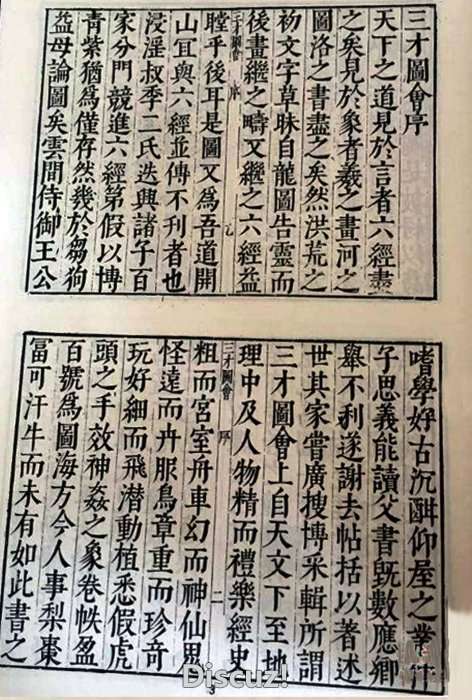 三才圖會序
天下之道見於言者六經盡
之矣見於象者羲之畫河之
圖洛之書盡之矣然洪荒之
初文字草昧自龍圖告靈而
後畫繼之疇文繼之六經益
三才圖會 序 乙
瞠乎後耳是圖又為吾道開
山宜與六經並傳不刊者也
浸淫叔季二氏迭興諸子百
家分門競進六經第假以博
青紫猶為僅存然幾於芻狗
益毋論圖矣雲間侍御王公
嗜學好古沉酣仰屋之業
子思義能讀父書既數應鄉
舉不利遂謝去帖括以著述
世其家嘗廣搜博采輯所謂
三才圖會上自天文下至地
理中及人物精而禮樂經史
三才圖會 序 二
粗而宮室舟車幻而神仙鬼
怪遠而卉服鳥章重而珍奇
玩好細而飛潛動植悉假虎
頭之手效神姦之象卷帙盈
百號為圖海方今人事梨棗
富可汗牛而未有如此書之
Discuz!